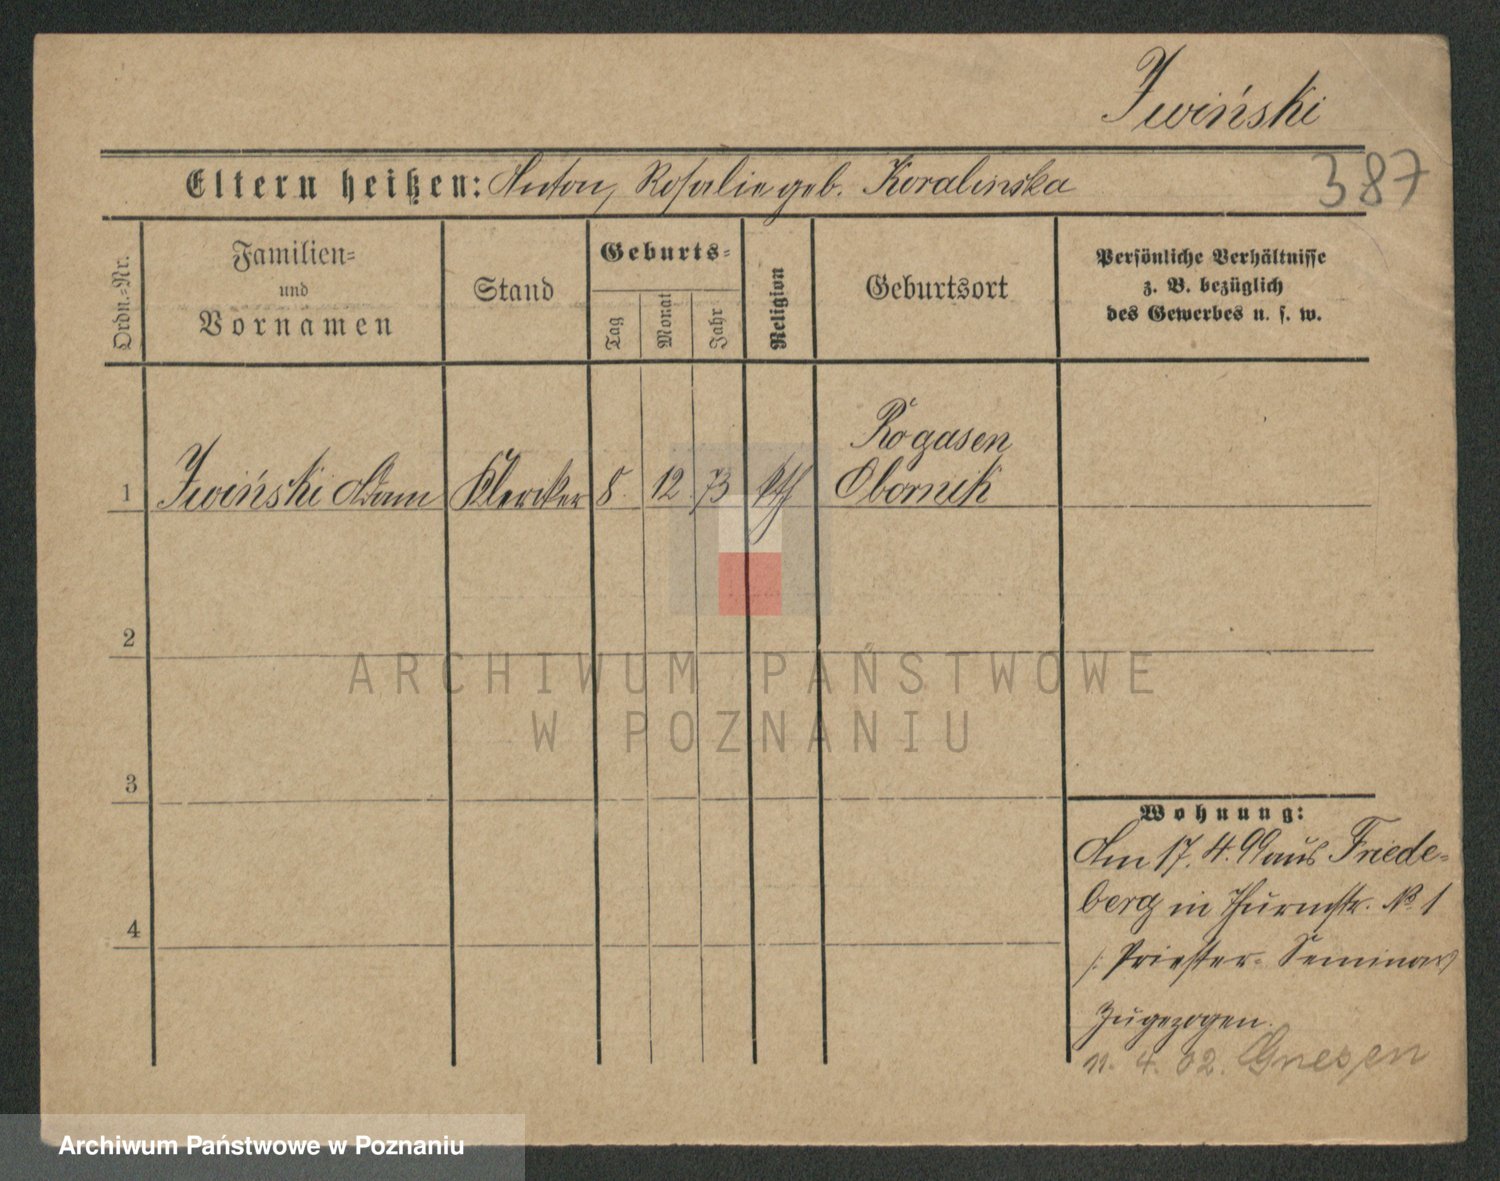 Iwiński
387
Eltern heißen: Anton, Rosalie geb. Koralinska
Ordn.-Nr.
Familien-
und
Vornamen
Stand
Geburts-
Tag
Monat
Jahr
Religion
Geburtsort
Persönliche Verhältnisse
z. B. bezüglich
des Gewerbes u. s. w.
1 Iwiński Adam Klericker 8. 12 73 kth Rogasen
Obornik
2
3
4
Wohnung:
Am 17. 4. 99 aus Friede-
berg in Thurmstr. No. 1
/: Priester-Seminar
zugezogen.
11. 4. 02. Gnesen
ARCHIWUM PAŃSTWOWE
W POZNANIU
Archiwum Państwowe w Poznaniu